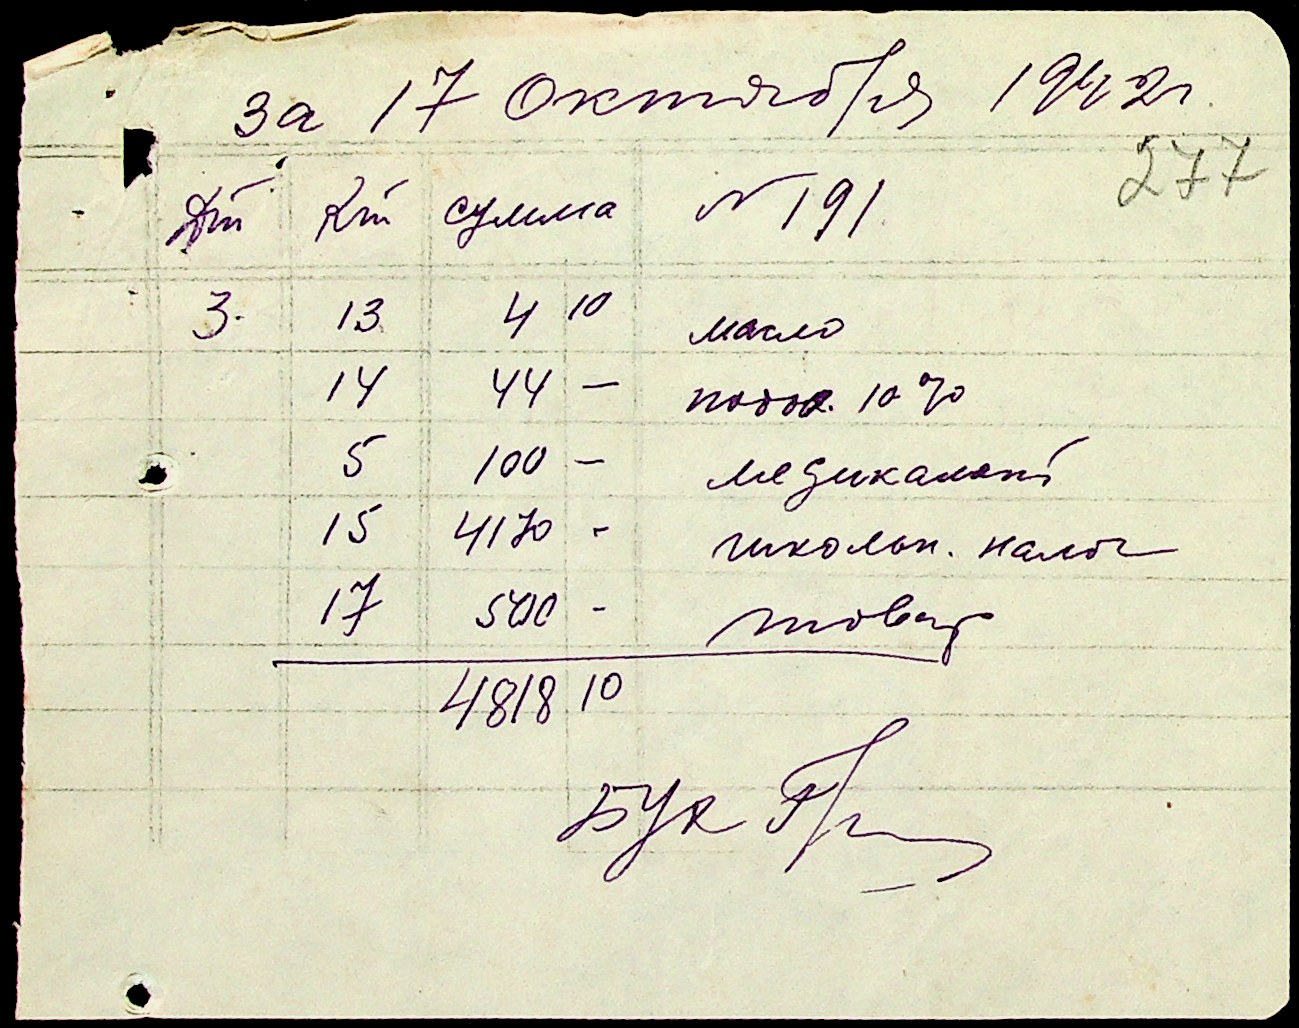 за 17 Октября 1942 г.
277
Дт Кт сумма N 191
3. 13 4 10 масло
14 44 — подох. 10 %
5 100 — медикамент
15 4170 - школьн. налог
17 500 - товар
4818 10
Бух